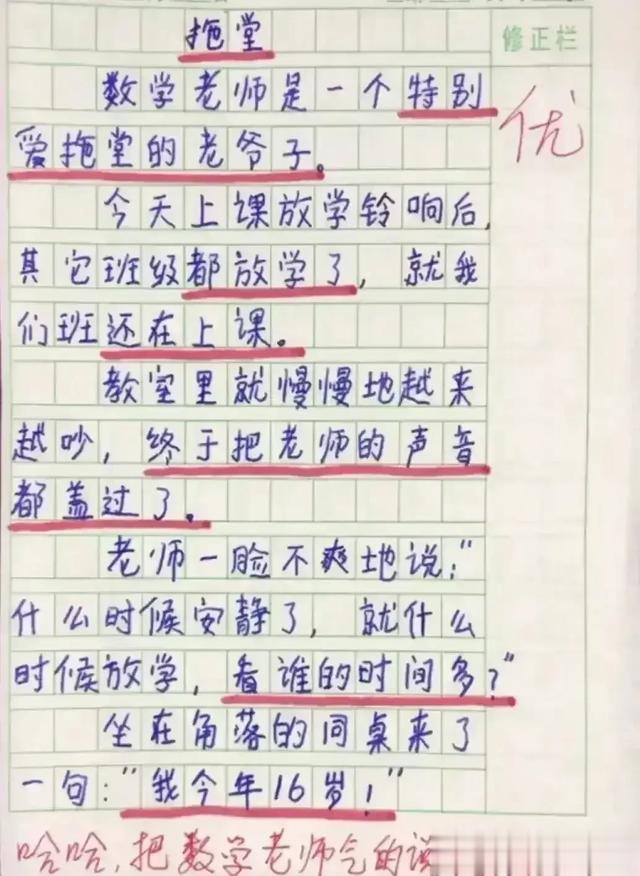 拖堂
修正栏
数学老师是一个特别
优
爱拖堂的老爷子。
今天上课放学铃响后,
其它班级都放学了，就我
们班还在上课。
教室里就慢慢地越来
越吵，终于把老师的声音
都盖过了。
老师一脸不爽地说:“
什么时候安静了，就什么
时候放学，看谁的时间多?”
坐在角落的同桌来了
一句:“我今年16岁!”
哈哈,把数学老师气的说